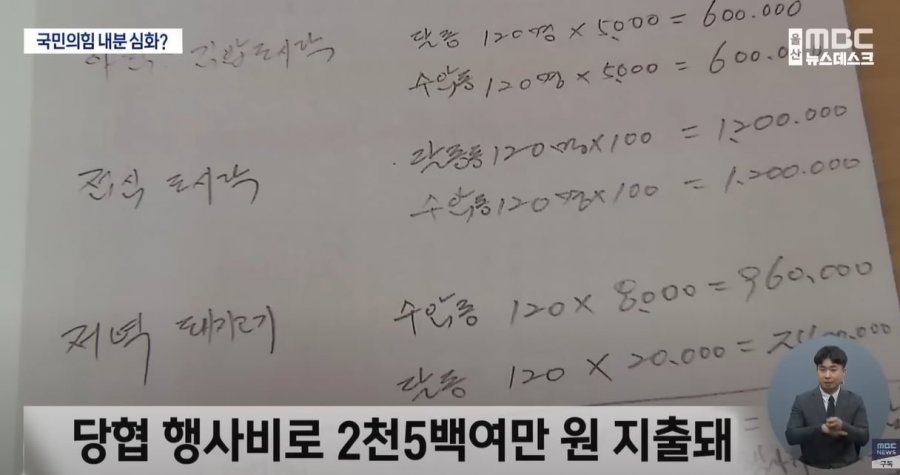 국민의힘 내분 심화?
울산 MBC 뉴스데스크
김밥도시락 달동 120명 × 5000 = 600.000
수암동 120명 × 5000 = 600.000
점심 도시락 달동 120명×100 = 1,200.000
수암동 120명×100 = 1.200.000
저녁 수암동 120 × 8000 = 960,000
달동 120 × 20.000 =
당협 행사비로 2천5백여만 원 지출돼
MBC NEWS
구독